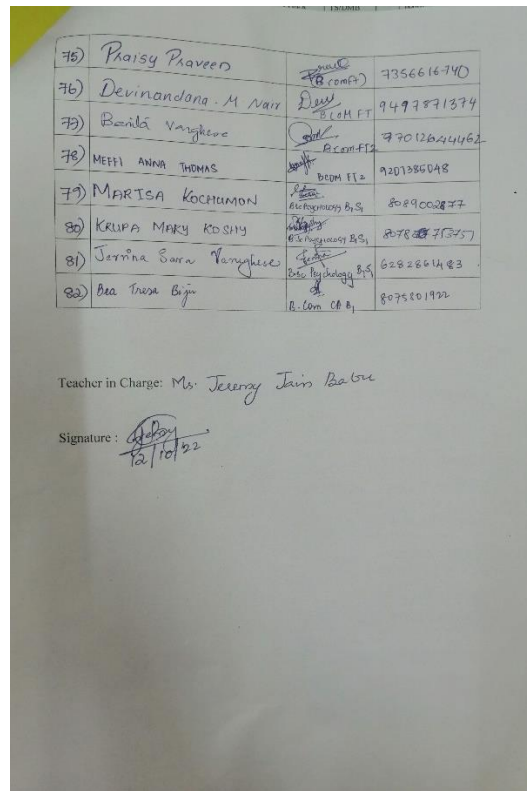 75) Praisy Praveen (B comFT) 7356616740
76) Devinandana. M Nair BCOM FT 9497871374
77) Varghese BcomFT2
78) MEFFI ANNA THOMAS BCOM FT2 9207385048
79) MARISA KOCHUMON BSc Psychology B1S1 8089002877
80) KRUPA MARY KOSHY B.Sc Psychology B1S1
81) Sara Varughese B.Sc Psychology B1S1 6282861483
82) Bea Tresa Biju B.Com CA B1 8075801922
Teacher in Charge: Ms. Jain Babu
Signature :
12/10/22